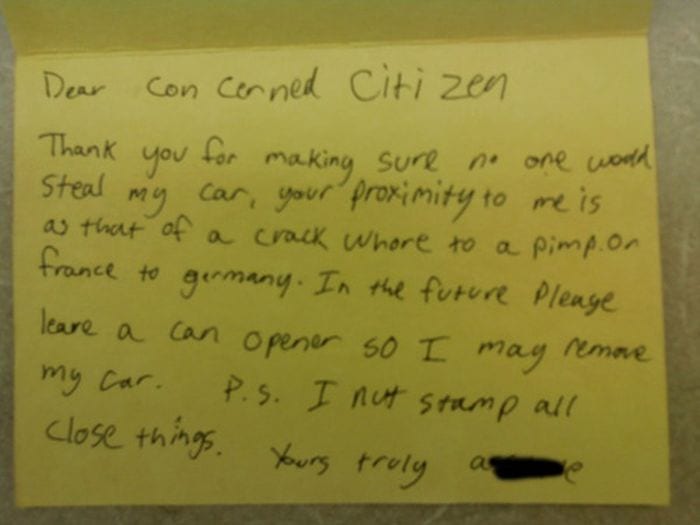 Dear Concerned Citizen
Thank you for making sure no one would
Steal my car, your proximity to me is
as that of a crack whore to a pimp. Or
france to germany. In the future Please
leave a can opener so I may remove
my car. P.S. I nut stamp all
close things.
Yours truly